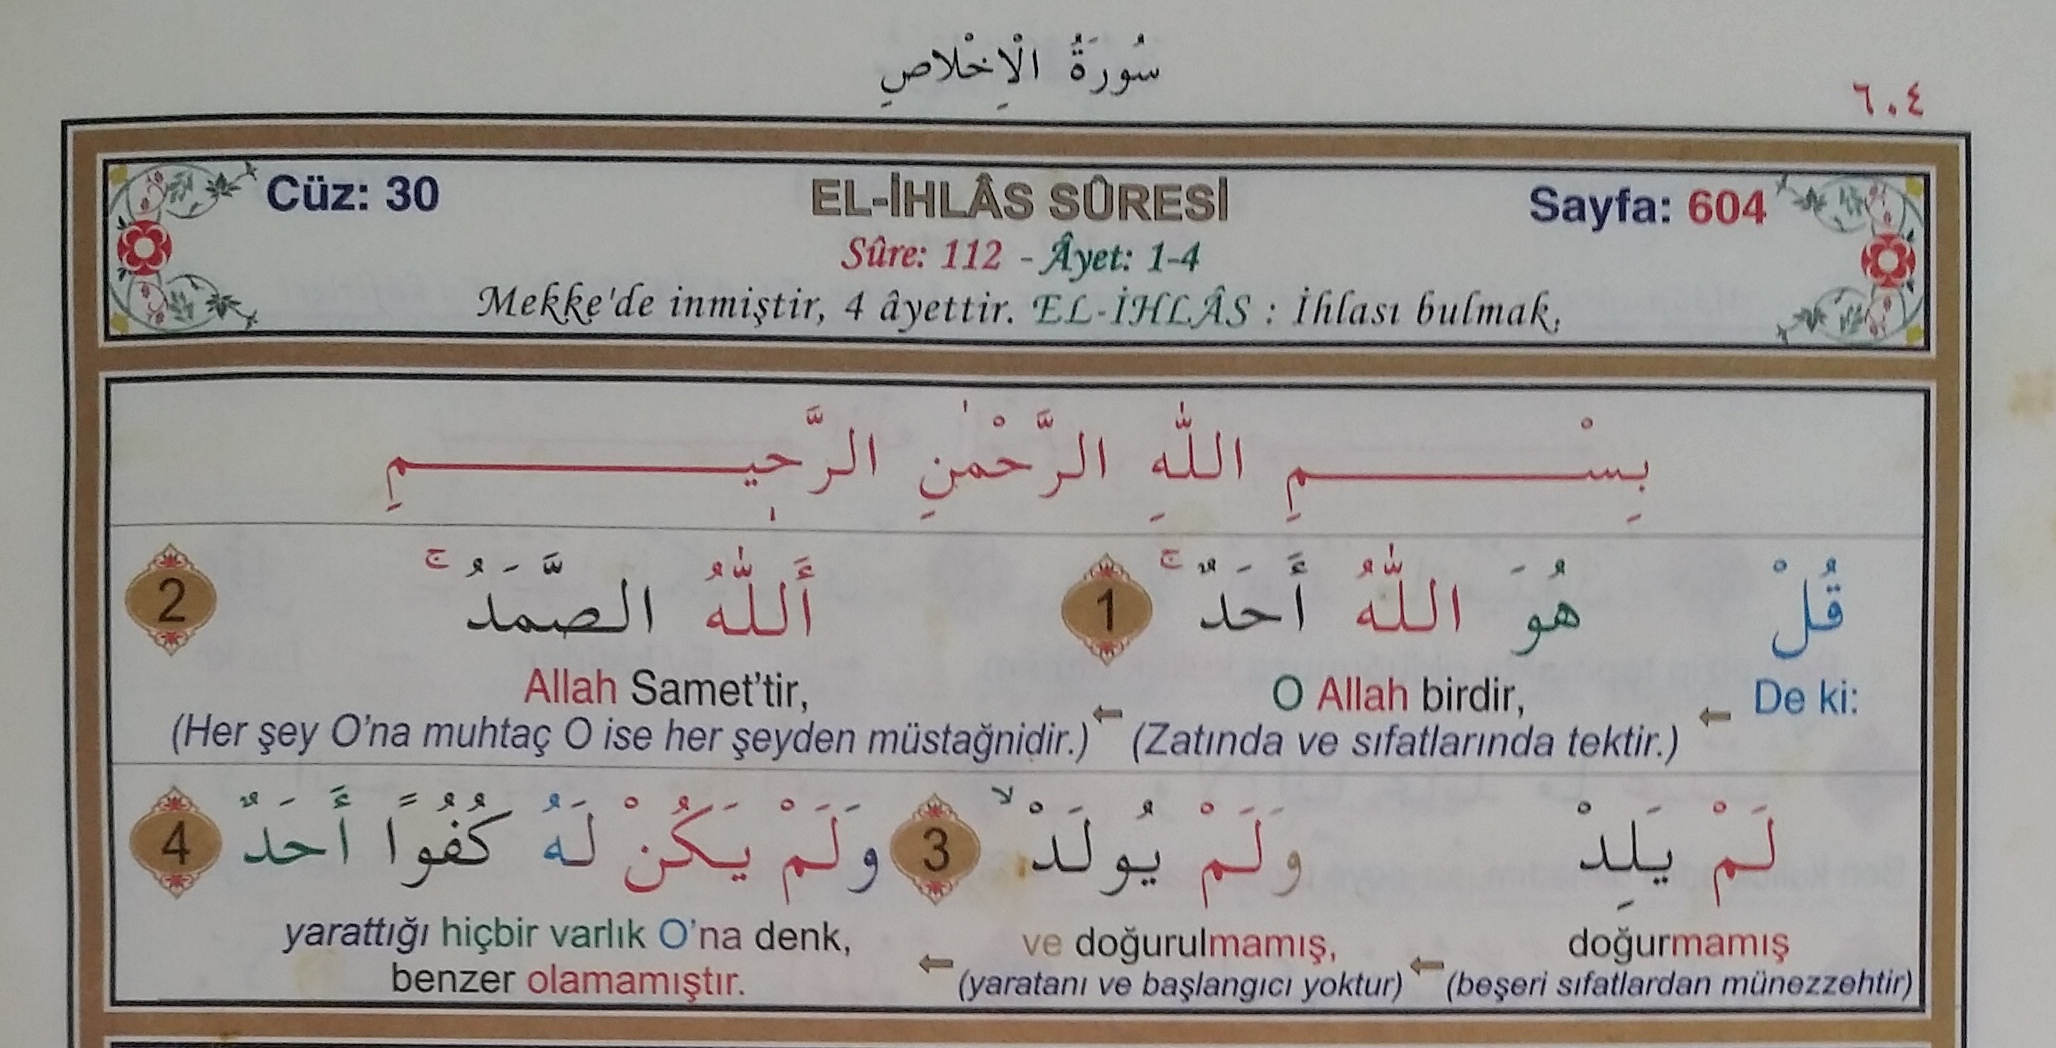 سُورَةُ الْاِخْلَاصِ
٦٠٤
Cüz: 30 EL-İHLÂS SÛRESİ Sayfa: 604
Sûre: 112 - Âyet: 1-4
Mekke'de inmiştir, 4 âyettir. EL-İHLÂS : İhlası bulmak,
بِسْــــــمِ اللّٰهِ الرَّحْمٰنِ الرَّح۪يــــــمِ
قُلْ هُوَ اللّٰهُ أَحَدٌ ۚ 1 أَللّٰهُ الصَّمَدُ ۚ 2
De ki: ← O Allah birdir, ← Allah Samet'tir,
(Zatında ve sıfatlarında tektir.) (Her şey O'na muhtaç O ise her şeyden müstağnidir.)
لَمْ يَلِدْ وَلَمْ يُولَدْ ۙ 3 وَلَمْ يَكُنْ لَهُ كُفُوًا أَحَدٌ 4
doğurmamış ← ve doğurulmamış, ← yarattığı hiçbir varlık O'na denk,
(beşeri sıfatlardan münezzehtir) (yaratanı ve başlangıcı yoktur) benzer olamamıştır.